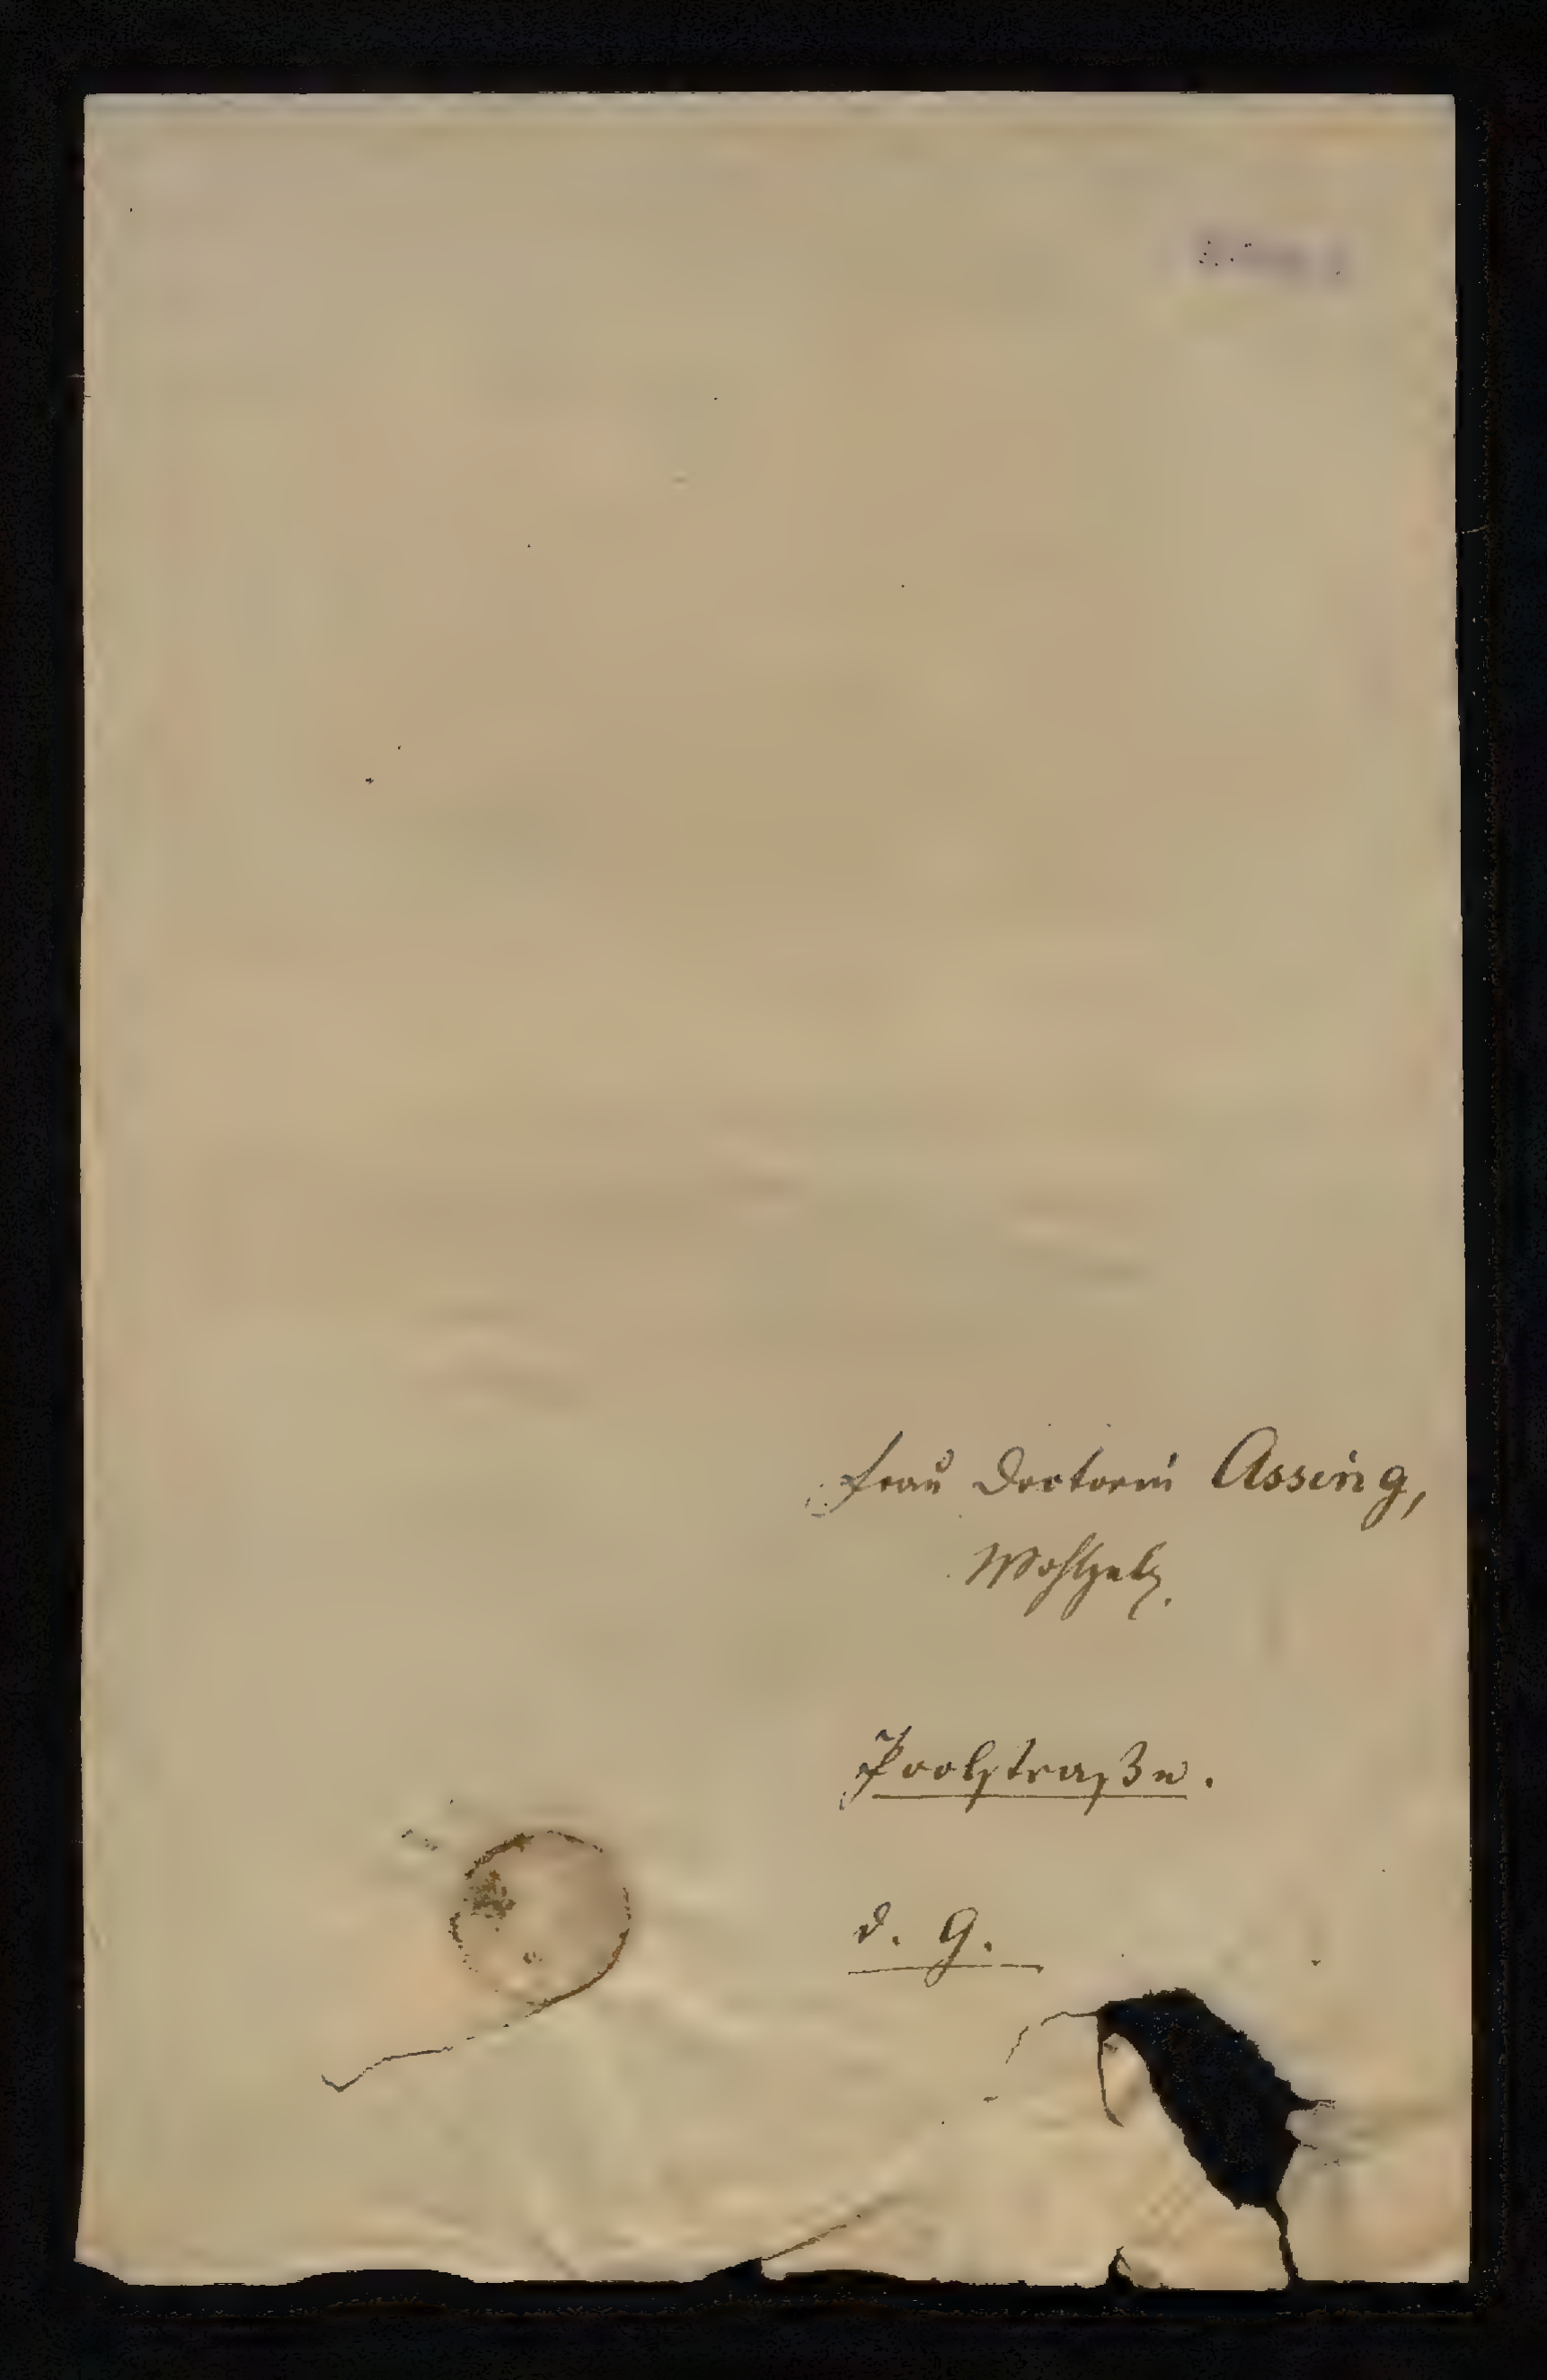 Frau Doctorin Assing,
Wohlgeb.
Poolstraße.
d. G.